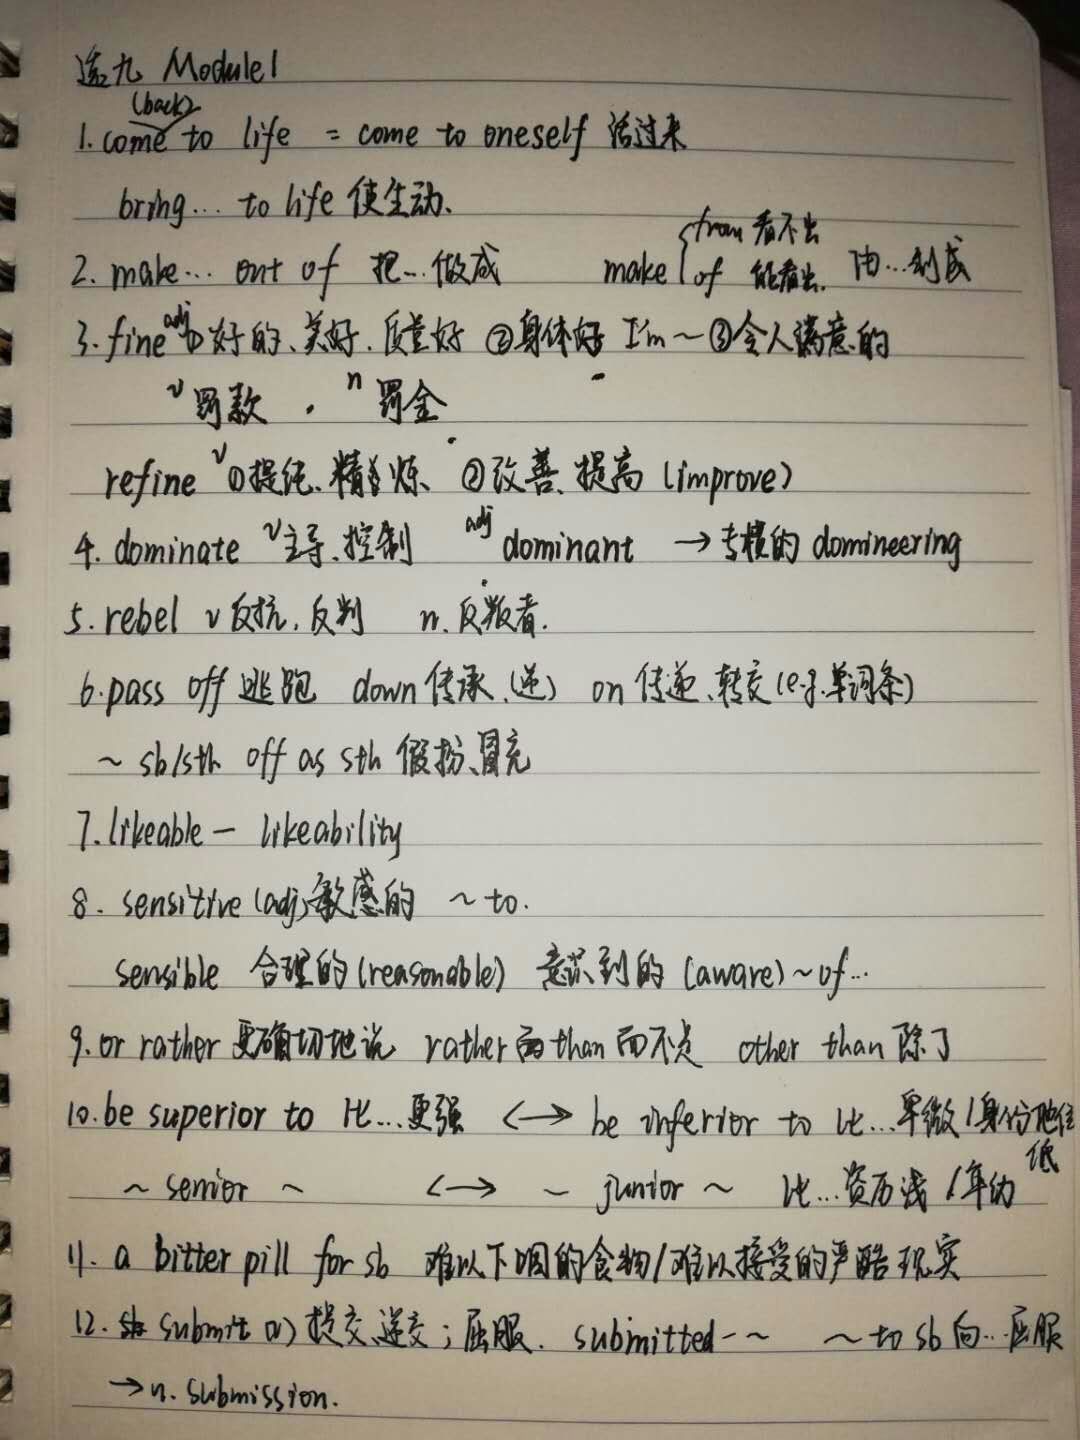 选九 Module 1
(back)
1. come to life = come to oneself 活过来
bring... to life 使生动.
2. make... out of 把...做成 make { from 看不出 of 能看出. 由...制成
3. fine adj ①好的、美好.质量好 ②身体好 I'm ~ ③令人满意的
v 罚款 . n 罚金
refine v ①提纯、精炼 ②改善、提高 (improve)
4. dominate v 主导、控制 adj dominant → 专横的 domineering
5. rebel v 反抗.反判 n. 反叛者.
6. pass off 逃跑 down 传承、(递) on 传递、转交 (e.g.单词条)
~ sb/sth off as sth 假扮、冒充
7. likeable — likeability
8. sensitive (adj) 敏感的 ~ to.
sensible 合理的 (reasonable) 意识到的 (aware) ~ of...
9. or rather 更确切地说 rather than 而不是 other than 除了
10. be superior to 比...更强 <—> be inferior to 比...卑微/身份地位低
~ senior ~ <—> ~ junior ~ 比...资历浅/年幼
11. a bitter pill for sb 难以下咽的食物/难以接受的严酷现实
12. submit (v) 提交、递交; 屈服. submitted -- ~ ~ to sb 向...屈服
→ n. submission.